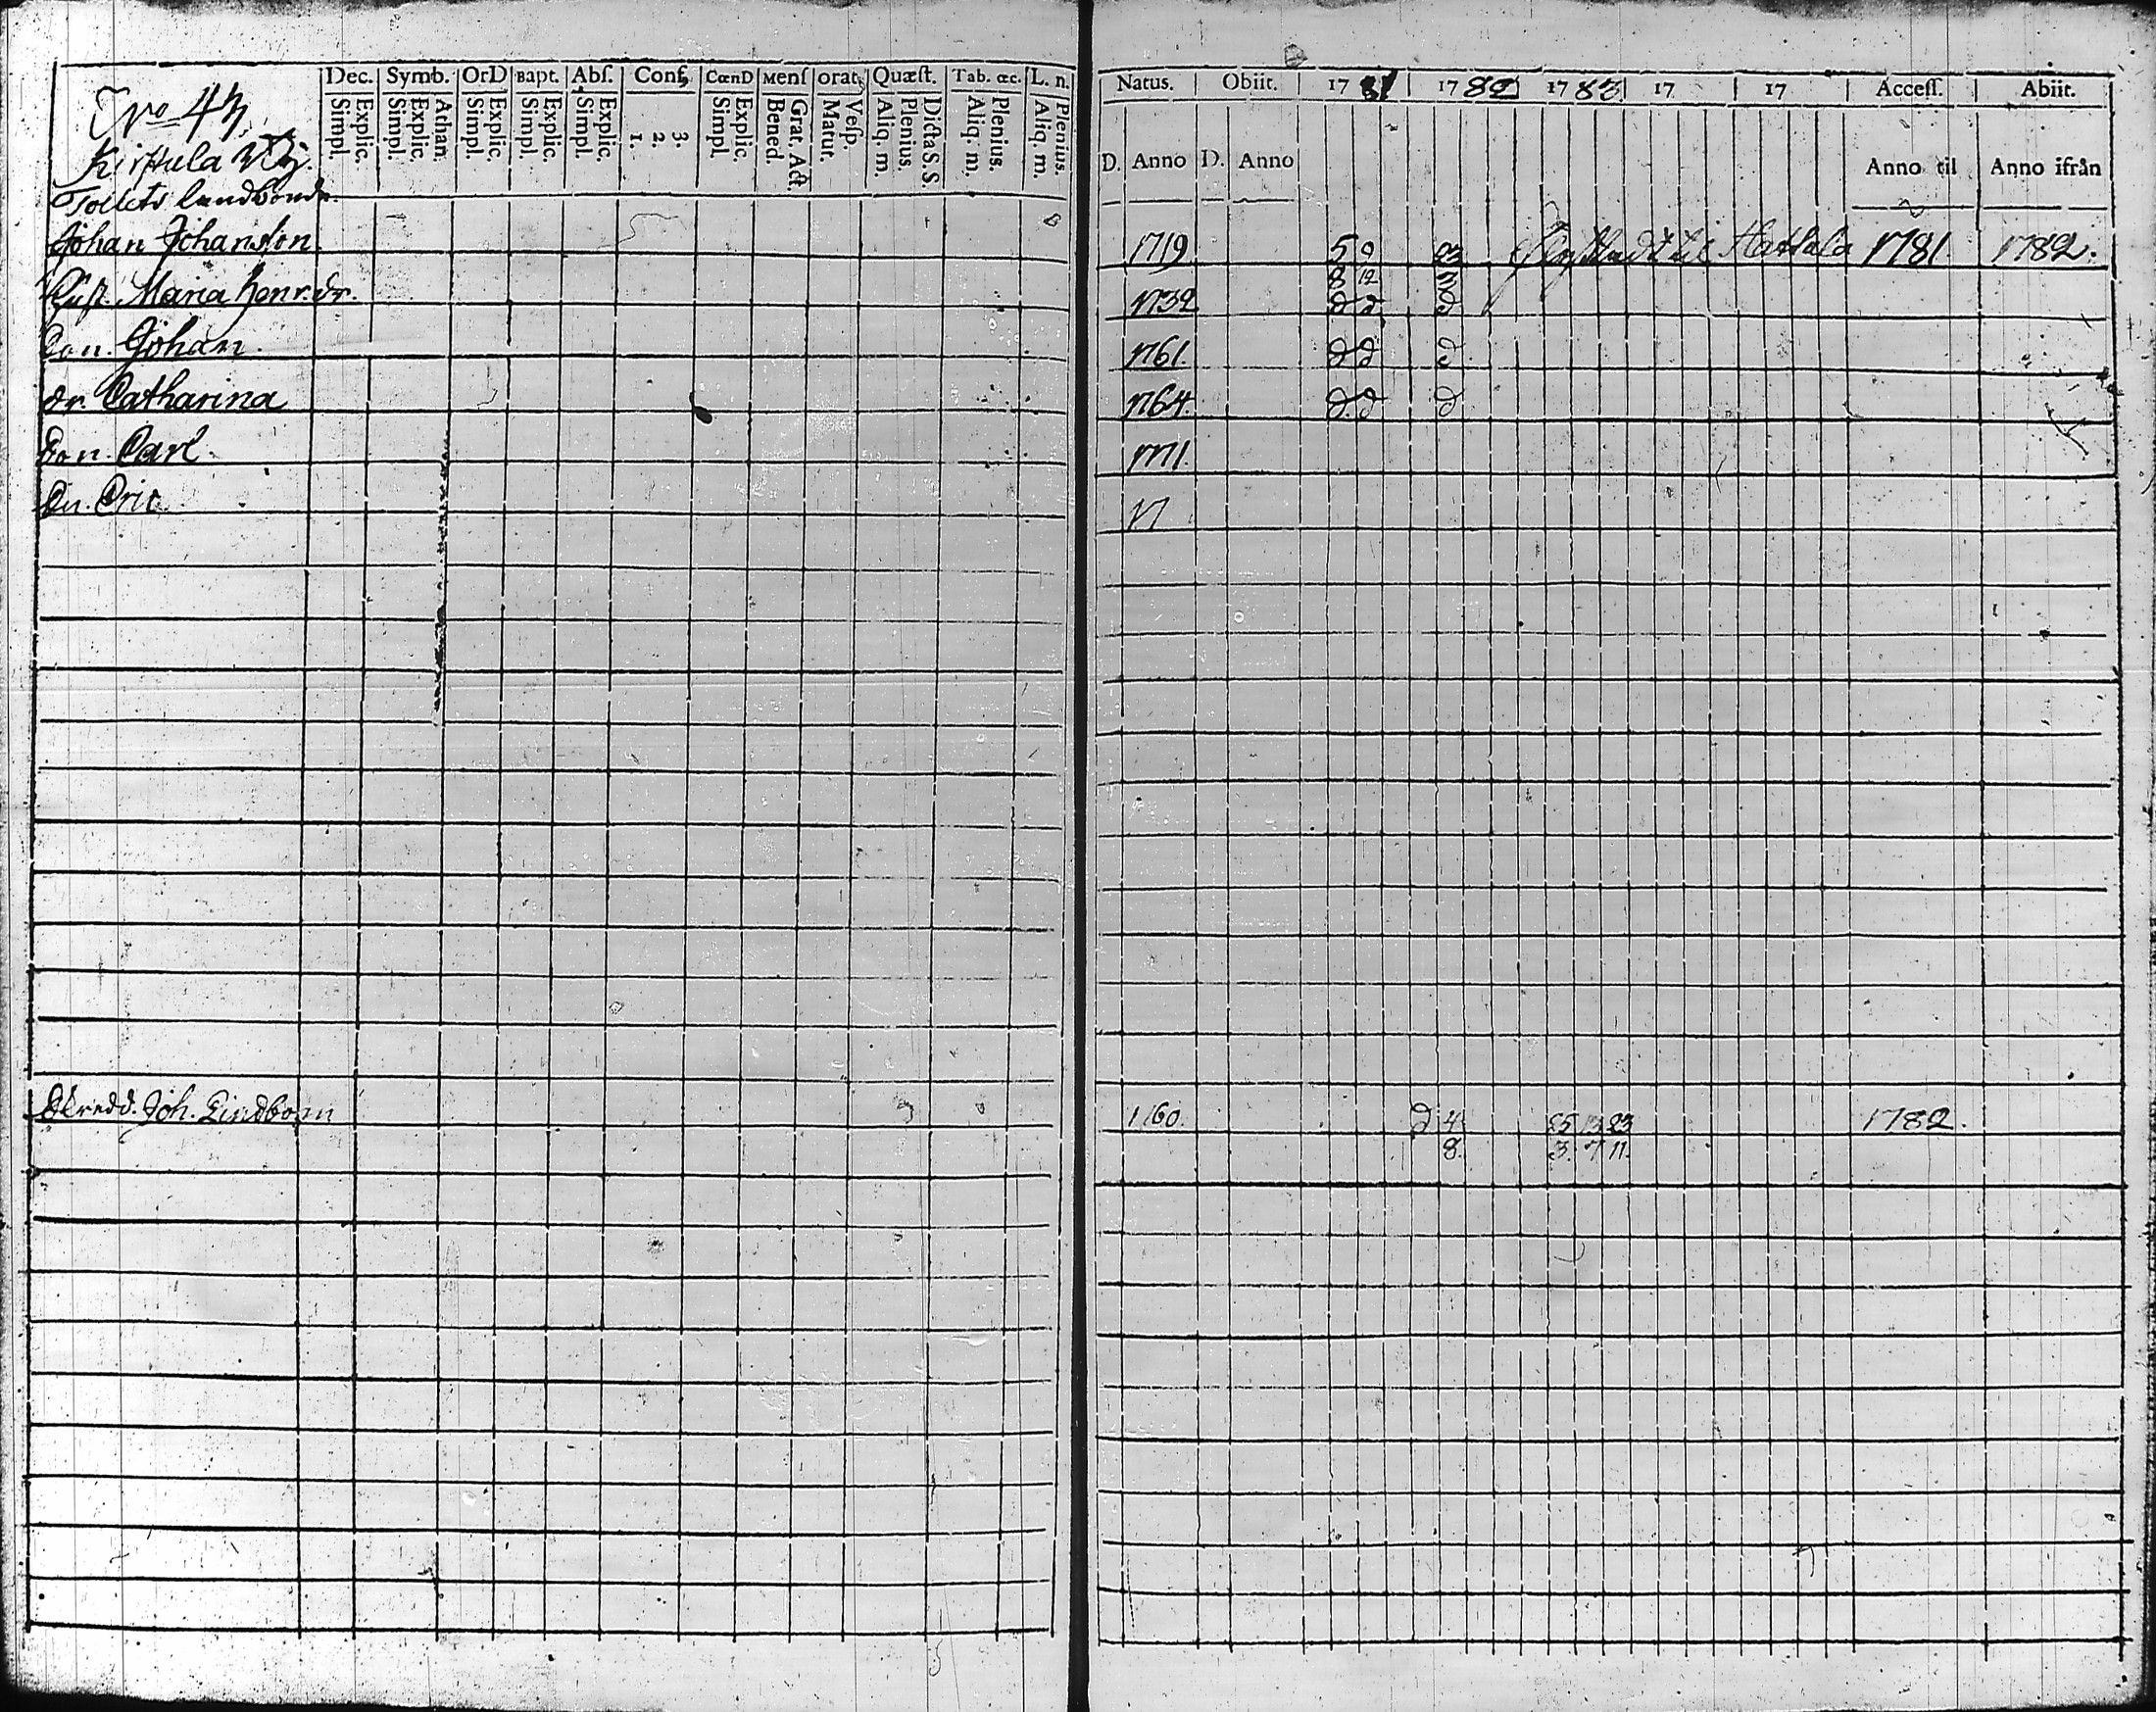 Dec. Symb. OrD Bapt. Abſ. Conf. CœnD Menſ orat. Quæſt. Tab. œc. L. n.
Simpl. Explic. Simpl. Explic. Athan. Simpl. Explic. Simpl. Explic. Simpl. Explic. 1. 2. 3. Simpl. Explic. Bened. Grat. Act. Matut. Veſp. Aliq. m. Plenius. Dicta S. S. Aliq. m. Plenius. Aliq. m. Plenius.
Natus. Obiit. 17 81 17 82 17 83 17 17 Acceſſ. Abiit.
D. Anno D. Anno Anno til Anno ifrån
No 43.
Kirstula
landbonde
Johan Johansson. 1719 5 9 23 til Hattala 1781. 1782.
8 12 3
Hust. Maria Henr. dr. 1732 d d d
Son. Johan. 1761. d d d
dr. Catharina 1764. d. d d
Son. Carl. 1771.
Son. Eric 17
Skredd. Joh. Lindbom 1760. d 4 25 13 23 1782.
8. 3. 7 11.